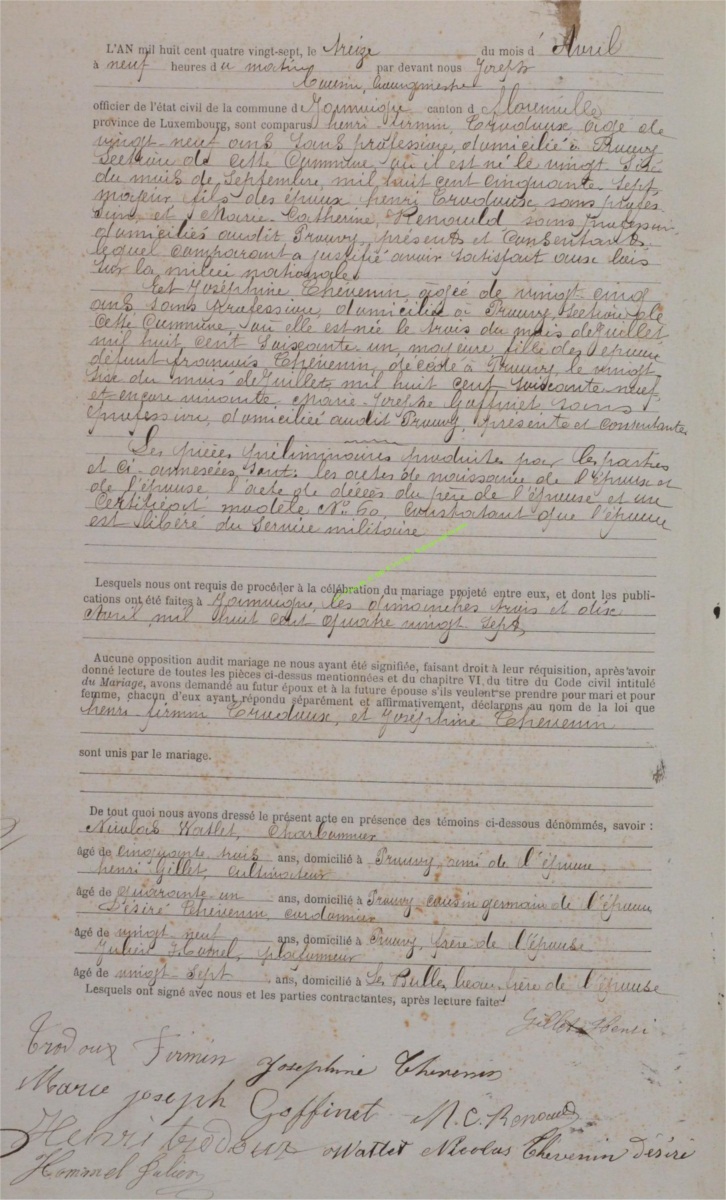 L'AN mil huit cent quatre vingt-sept, le treize du mois d'Avril
à neuf heures du matin par devant nous Joseph
bourgmestre
officier de l'état civil de la commune d Jamoigne canton d Florenville
province de Luxembourg, sont comparus henri firmin, Trodoux âgé de
vingt neuf ans sans profession, domicilié à Prouvy
Section de cette Commune, où il est né le vingt Six
du mois de Septembre, mil huit cent cinquante Sept
majeur fils des époux henri Trodoux, sans profes-
sion, et Marie Catherine, Renauld sans profession
domiciliés audit Prouvy, présents et consentants
lequel comparant a justifié avoir satisfait aux lois
sur la milice nationale
Et Joséphine Thévenin, âgée de vingt cinq
ans sans profession, domiciliée à Prouvy, section de
cette Commune, où elle est née le trois du mois de Juillet
mil huit cent soixante un, majeure fille des époux
défunt françois Thévenin, décédé à Prouvy, le vingt
Six du mois de Juillet mil huit cent soixante neuf
et encore vivante Marie Joseph Goffinet, sans
profession, domiciliée audit Prouvy, présente et consentante
Les pièces préliminaires produites par les parties
et ci-annexées, sont: les actes de naissance de l'époux et
de l'épouse l'acte de décès du père de l'épouse et un
Certificat modèle No 60, constatant que l'époux
est libéré du Service militaire
Lesquels nous ont requis de procéder à la célébration du mariage projeté entre eux, et dont les publi-
cations ont été faites à Jamoigne, les dimanches trois et dix
Avril mil huit cent quatre vingt Sept,
Aucune opposition audit mariage ne nous ayant été signifiée, faisant droit à leur réquisition, après avoir
donné lecture de toutes les pièces ci-dessus mentionnées et du chapitre VI du titre du Code civil intitulé
du Mariage, avons demandé au futur époux et à la future épouse s'ils veulent se prendre pour mari et pour
femme, chacun d'eux ayant répondu séparément et affirmativement, déclarons au nom de la loi que
henri firmin Trodoux, et Joséphine Thévenin
sont unis par le mariage.
De tout quoi nous avons dressé le présent acte en présence des témoins ci-dessous dénommés, savoir :
Nicolas Watlet, Charbonnier
âgé de cinquante trois ans, domicilié à Prouvy ami de l'époux
henri Gillet, cultivateur
âgé de quarante un ans, domicilié à Prouvy cousin germain de l'époux
Désiré Thévenin, cordonnier
âgé de vingt neuf ans, domicilié à Prouvy, frère de l'épouse
plafonneur
âgé de vingt Sept ans, domicilié à beau frère de l'épouse
Lesquels ont signé avec nous et les parties contractantes, après lecture faite
Gillet Henri
Trodoux Firmin Josephine Thevenin
Marie joseph Goffinet M. C. Renauld
Henri trodoux Watlet Nicolas Thevenin Désiré